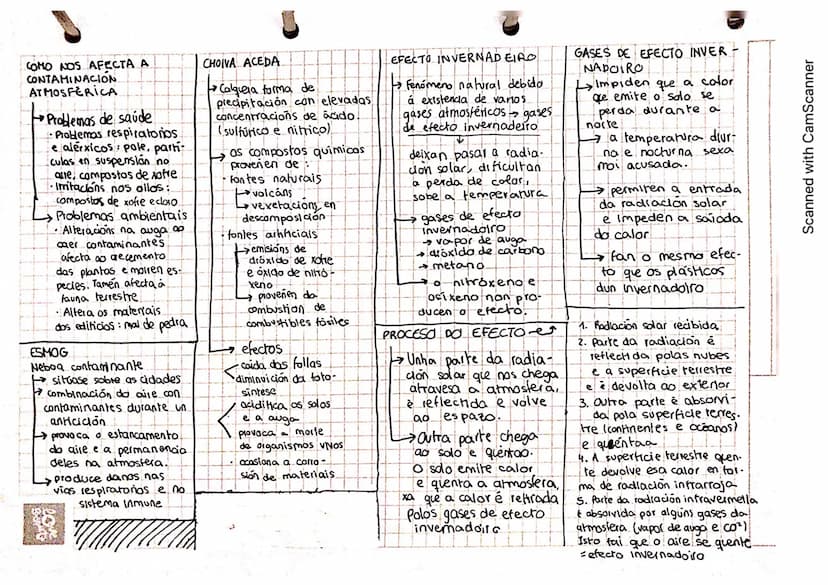 COMO NOS AFECTA A
CONTAMINACION
ATMOSFÉRICA
→ Problemas de saúde
· Problemas respiratorios
e aléxicos: pole, partí-
culas en suspensión no
aire, compostos de xofre
· Irritacións nos ollos:
compostos de xofre e cloro
→ Problemas ambientais
· Alteracións na auga ao
caer contaminantes
afecta ao crecemento
das plantas e morren es-
pecies. Tamén afecta á
fauna terrestre
· Altera os materiais
dos edificios: mal de pedra
ESMOG
Néboa contaminante
→ sitúase sobre as cidades
→ combinación do aire con
contaminantes durante un
anticiclón
→ provoca o estancamento
do aire e a permanencia
deles na atmosfera.
→ produce danos nas
vías respiratorios e no
sistema inmune
CHOIVA ACEDA
→ Calquera forma de
precipitación con elevadas
concentracións de ácido.
(sulfúrico e nítrico)
→ os compostos químicos
proveñen de:
· fontes naturais
→ volcáns
→ vexetación en
descomposición
· fontes artificiais
→ emisións de
dióxido de xofre
e óxido de nitró-
xeno
→ proveñen da
combustion de
combustibles fósiles
→ efectos
caída das follas
diminuición da foto-
síntese
acidifica os solos
e a auga
provoca a morte
de organismos vivos
· ocasiona a corro-
sión de materiais
EFECTO INVERNADEIRO
→ Fenómeno natural debido
á existencia de varios
gases atmosféricos → gases
de efecto invernadeiro
↓
deixan pasar a radia-
ción solar, dificultan
a perda de calor,
sobe a temperatura
→ gases de efecto
invernadoiro
→ vapor de auga
→ dióxido de carbono
→ metano
→ o nitróxeno e
osíxeno non pro-
ducen o efecto.
PROCESO DO EFECTO
→ Unha parte da radia-
ción solar que nos chega
atravesa a atmosfera,
é reflectida e volve
ao espazo.
→ Outra parte chega
ao solo e quéntao.
O solo emite calor
e quenta a atmosfera,
xa que a calor é retirada
polos gases de efecto
invernadoiro
GASES DE EFECTO INVER-
NADOIRO
→ Impiden que a calor
que emite o solo se
perda durante a
noite
→ a temperatura diur-
na e nocturna sexa
moi acusada.
→ permiten a entrada
da radiación solar
e impeden a saída
do calor
→ fan o mesmo efec-
to que os plásticos
dun invernadoiro
1. Radiación solar recibida
2. Parte da radiación é
reflectida polas nubes
e a superficie terrestre
e é devolta ao exterior
3. Outra parte é absorvi-
da pola superficie terres-
tre (continentes e océanos)
e quéntaa
4. A superficie terrestre quen-
te devolve esa calor en for-
ma de radiación infrarroja
5. Parte da radiación infravermella
é absolvida por algúns gases da
atmosfera (vapor de auga e CO²)
Isto fai que o aire se quente
= efecto invernadoiro
Scanned with CamScanner